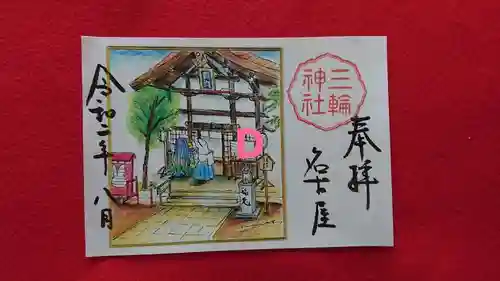 奉拝
三輪神社
名古屋
令和二年八月
D